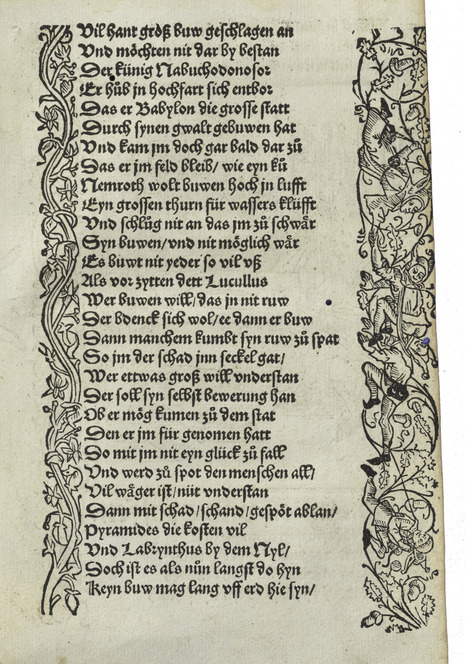 Vil hant größ buw geschlagen an
Vnd möchten nit dar by bestan
Der künig Nabuchodonosor
Er hůb jn hochfart sich entbor
Das er Babylon die grosse statt
Durch synen gwalt gebuwen hat
Vnd kam jm doch gar bald dar zů
Das er jm feld bleib/ wie eyn ků
Nemroth wolt buwen hoch jn lufft
Eyn grossen thurn für wassers klüfft
Vnd schlůg nit an das jm zů schwär
Syn buwen/ vnd nit möglich wär
Es buwt nit yeder so vil vß
Als vor zytten dett Lucullus
Wer buwen will/ das jn nit ruw
Der bdenck sich wol/ ee dann er buw
Dann manchem kumbt syn ruw zů spat
So jm der schad jnn seckel gat/
Wer ettwas groß will vnderstan
Der soll syn selbst bewerung han
Ob er mög kumen zů dem stat
Den er jm für genomen hatt
Do mit jm nit eyn glück zů fall
Vnd werd zů spot den menschen all/
Vil wäger ist/ nüt vnderstan
Dann mit schad/ schand/ gespöt ablan/
Pyramides die kosten vil
Vnd Labrynthus by dem Nyl/
Doch ist es als nůn langst do hyn
Keyn buw mag lang vff erd hie syn/